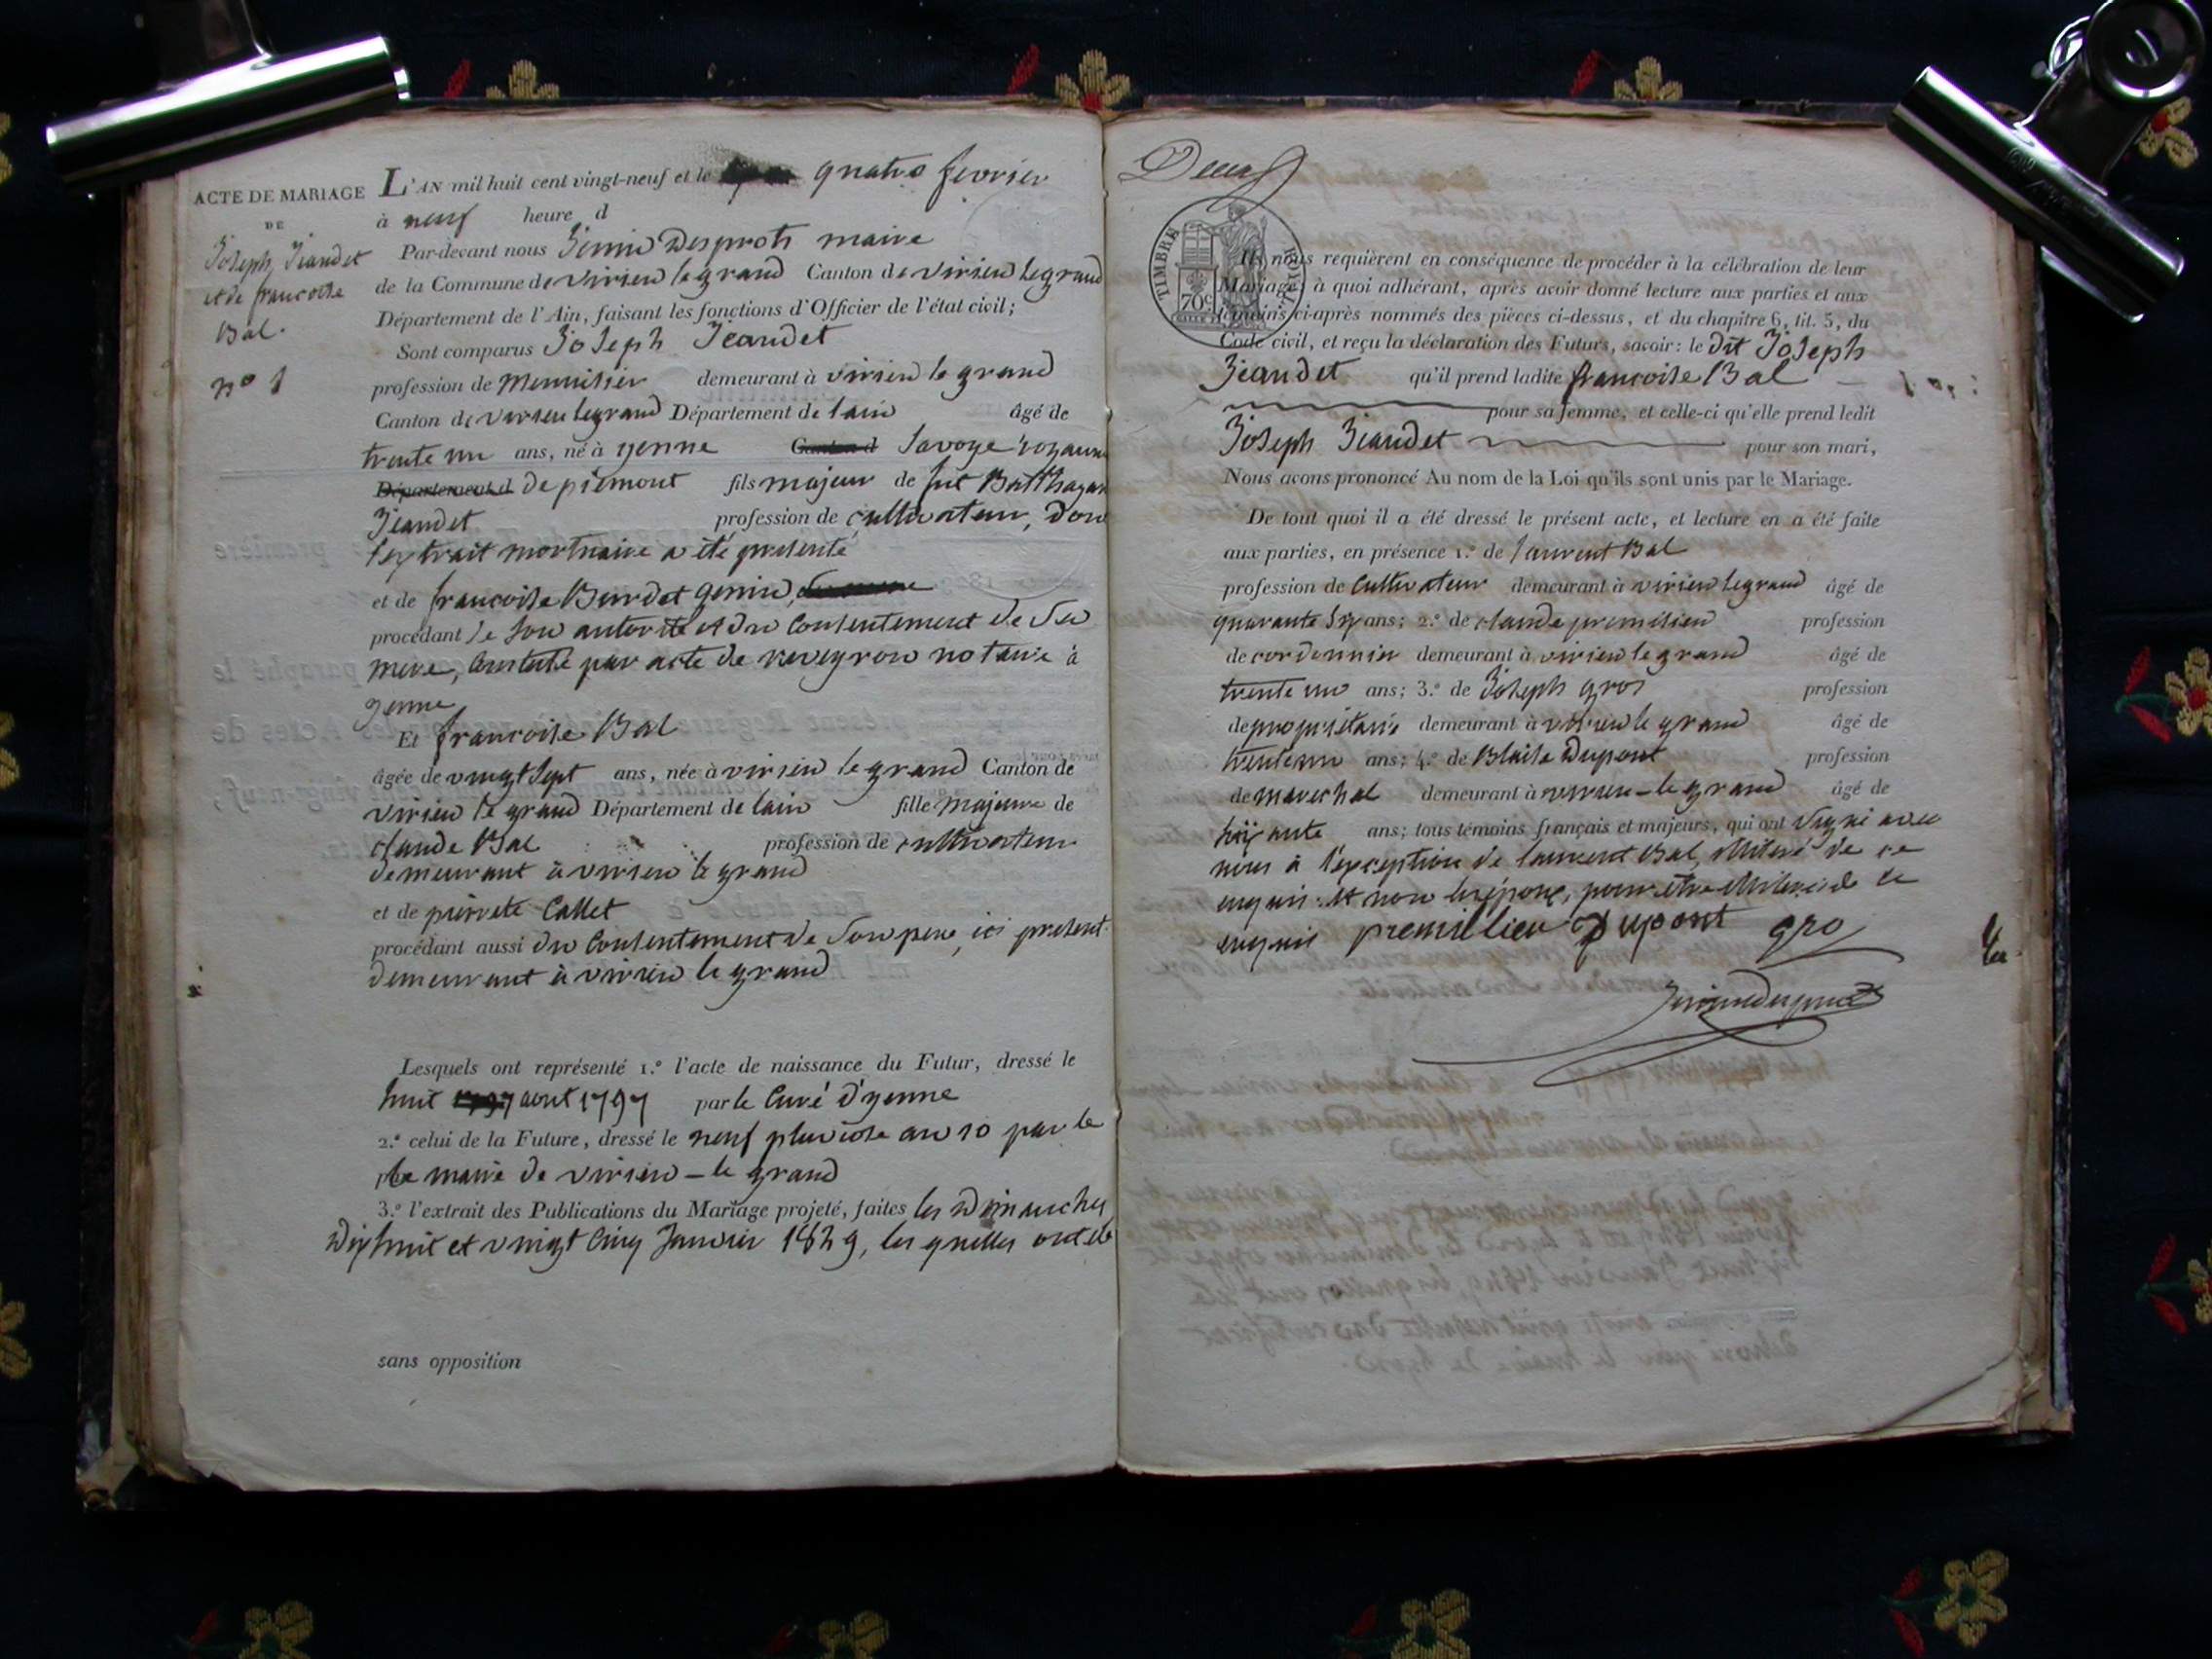 ACTE DE MARIAGE
DE
Joseph Jeandet
et de francoise
Bal.
n° 1
L'AN mil huit cent vingt-neuf et le quatre fevrier
à neuf heure d
Par-devant nous Jenin Desprots maire
de la Commune de virieu le grand Canton de virieu le grand
Département de l'Ain, faisant les fonctions d'Officier de l'état civil;
Sont comparus Joseph Jeandet
profession de Menuisier demeurant à virieu le grand
Canton de virieu le grand Département de lain âgé de
trente un ans, né à yenne Canton d Savoye royaume
Département d de piemont fils majeur de fut Balthazar
Jeandet profession de cultivateur, dont
l'extrait mortuaire a été presenté
et de francoise Burdet genin,
procédant de son autorité et du Consentement de Sa
mere, Constaté par acte de reveyron notaire à
yenne
Et francoise Bal
âgée de vingt Sept ans, née à virieu le grand Canton de
virieu le grand Département de lain fille majeure de
claude Bal profession de cultivateur
demeurant à virieu le grand
et de pierrete Callet
procédant aussi du Consentement de Son pere, ici present
demeurant à virieu le grand
Lesquels ont représenté 1.° l'acte de naissance du Futur, dressé le
huit aout 1797 par le Curé d'yenne
2.° celui de la Future, dressé le neuf pluviose an 10 par le
le maire de virieu-le grand
3.° l'extrait des Publications du Mariage projeté, faites les Dimanches
Dixhuit et vingt Cinq Janvier 1829, les quelles ont été
sans opposition
TIMBRE ROYAL
70c
Ils nous requièrent en conséquence de procéder à la célébration de leur
Mariage; à quoi adhérant, après avoir donné lecture aux parties et aux
témoins ci-après nommés des pièces ci-dessus, et du chapitre 6, tit. 5, du
Code civil, et reçu la déclaration des Futurs, savoir: le dit Joseph
Jeandet qu'il prend ladite francoise Bal
pour sa femme, et celle-ci qu'elle prend ledit
Joseph Jeandet pour son mari,
Nous avons prononcé Au nom de la Loi qu'ils sont unis par le Mariage.
De tout quoi il a été dressé le présent acte, et lecture en a été faite
aux parties, en présence 1.° de laurent Bal
profession de Cultivateur demeurant à virieu le grand âgé de
quarante Six ans; 2.° de claude premilieu profession
de cordonnier demeurant à virieu le grand âgé de
trente un ans; 3.° de Joseph gros profession
de propriétaire demeurant à virieu le grand âgé de
trente un ans; 4.° de Blaise Dupont profession
de marechal demeurant à virieu-le grand âgé de
Soixante ans; tous témoins français et majeurs, qui ont Signé avec
nous à l'exception de laurent Bal, illiteré de ce
enquis. et non les époux, pour être illiterés de ce
enquis premillieu Dupont gro
Jenindesprots